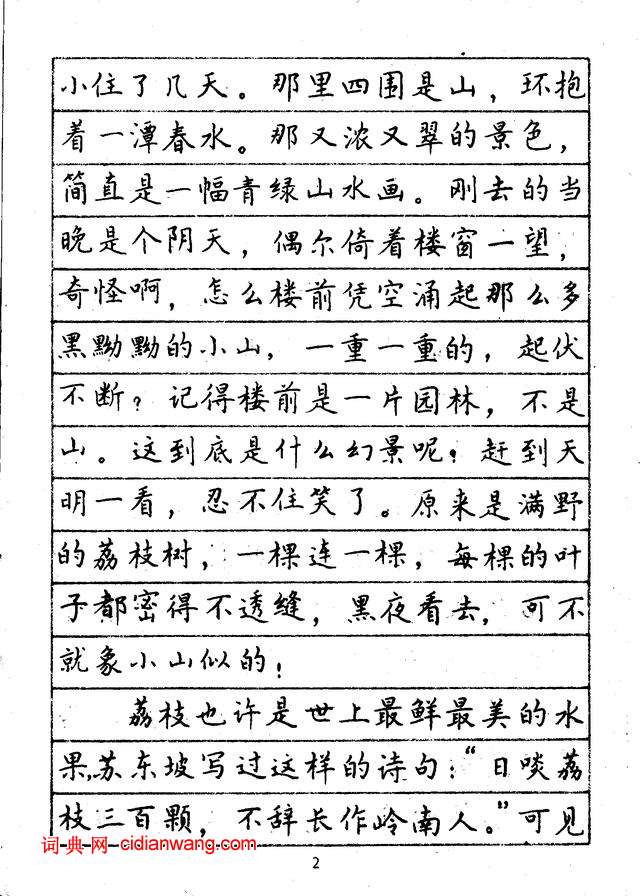 小住了几天。那里四围是山，环抱
着一潭春水。那又浓又翠的景色，
简直是一幅青绿山水画。刚去的当
晚是个阴天，偶尔倚着楼窗一望，
奇怪啊，怎么楼前凭空涌起那么多
黑黝黝的小山，一重一重的，起伏
不断？记得楼前是一片园林，不是
山。这到底是什么幻景呢？赶到天
明一看，忍不住笑了。原来是满野
的荔枝树，一棵连一棵，每棵的叶
子都密得不透缝，黑夜看去，可不
就象小山似的！
荔枝也许是世上最鲜最美的水
果，苏东坡写过这样的诗句：“日啖荔
枝三百颗，不辞长作岭南人。”可见
词·典·网·cidianwang.com
2